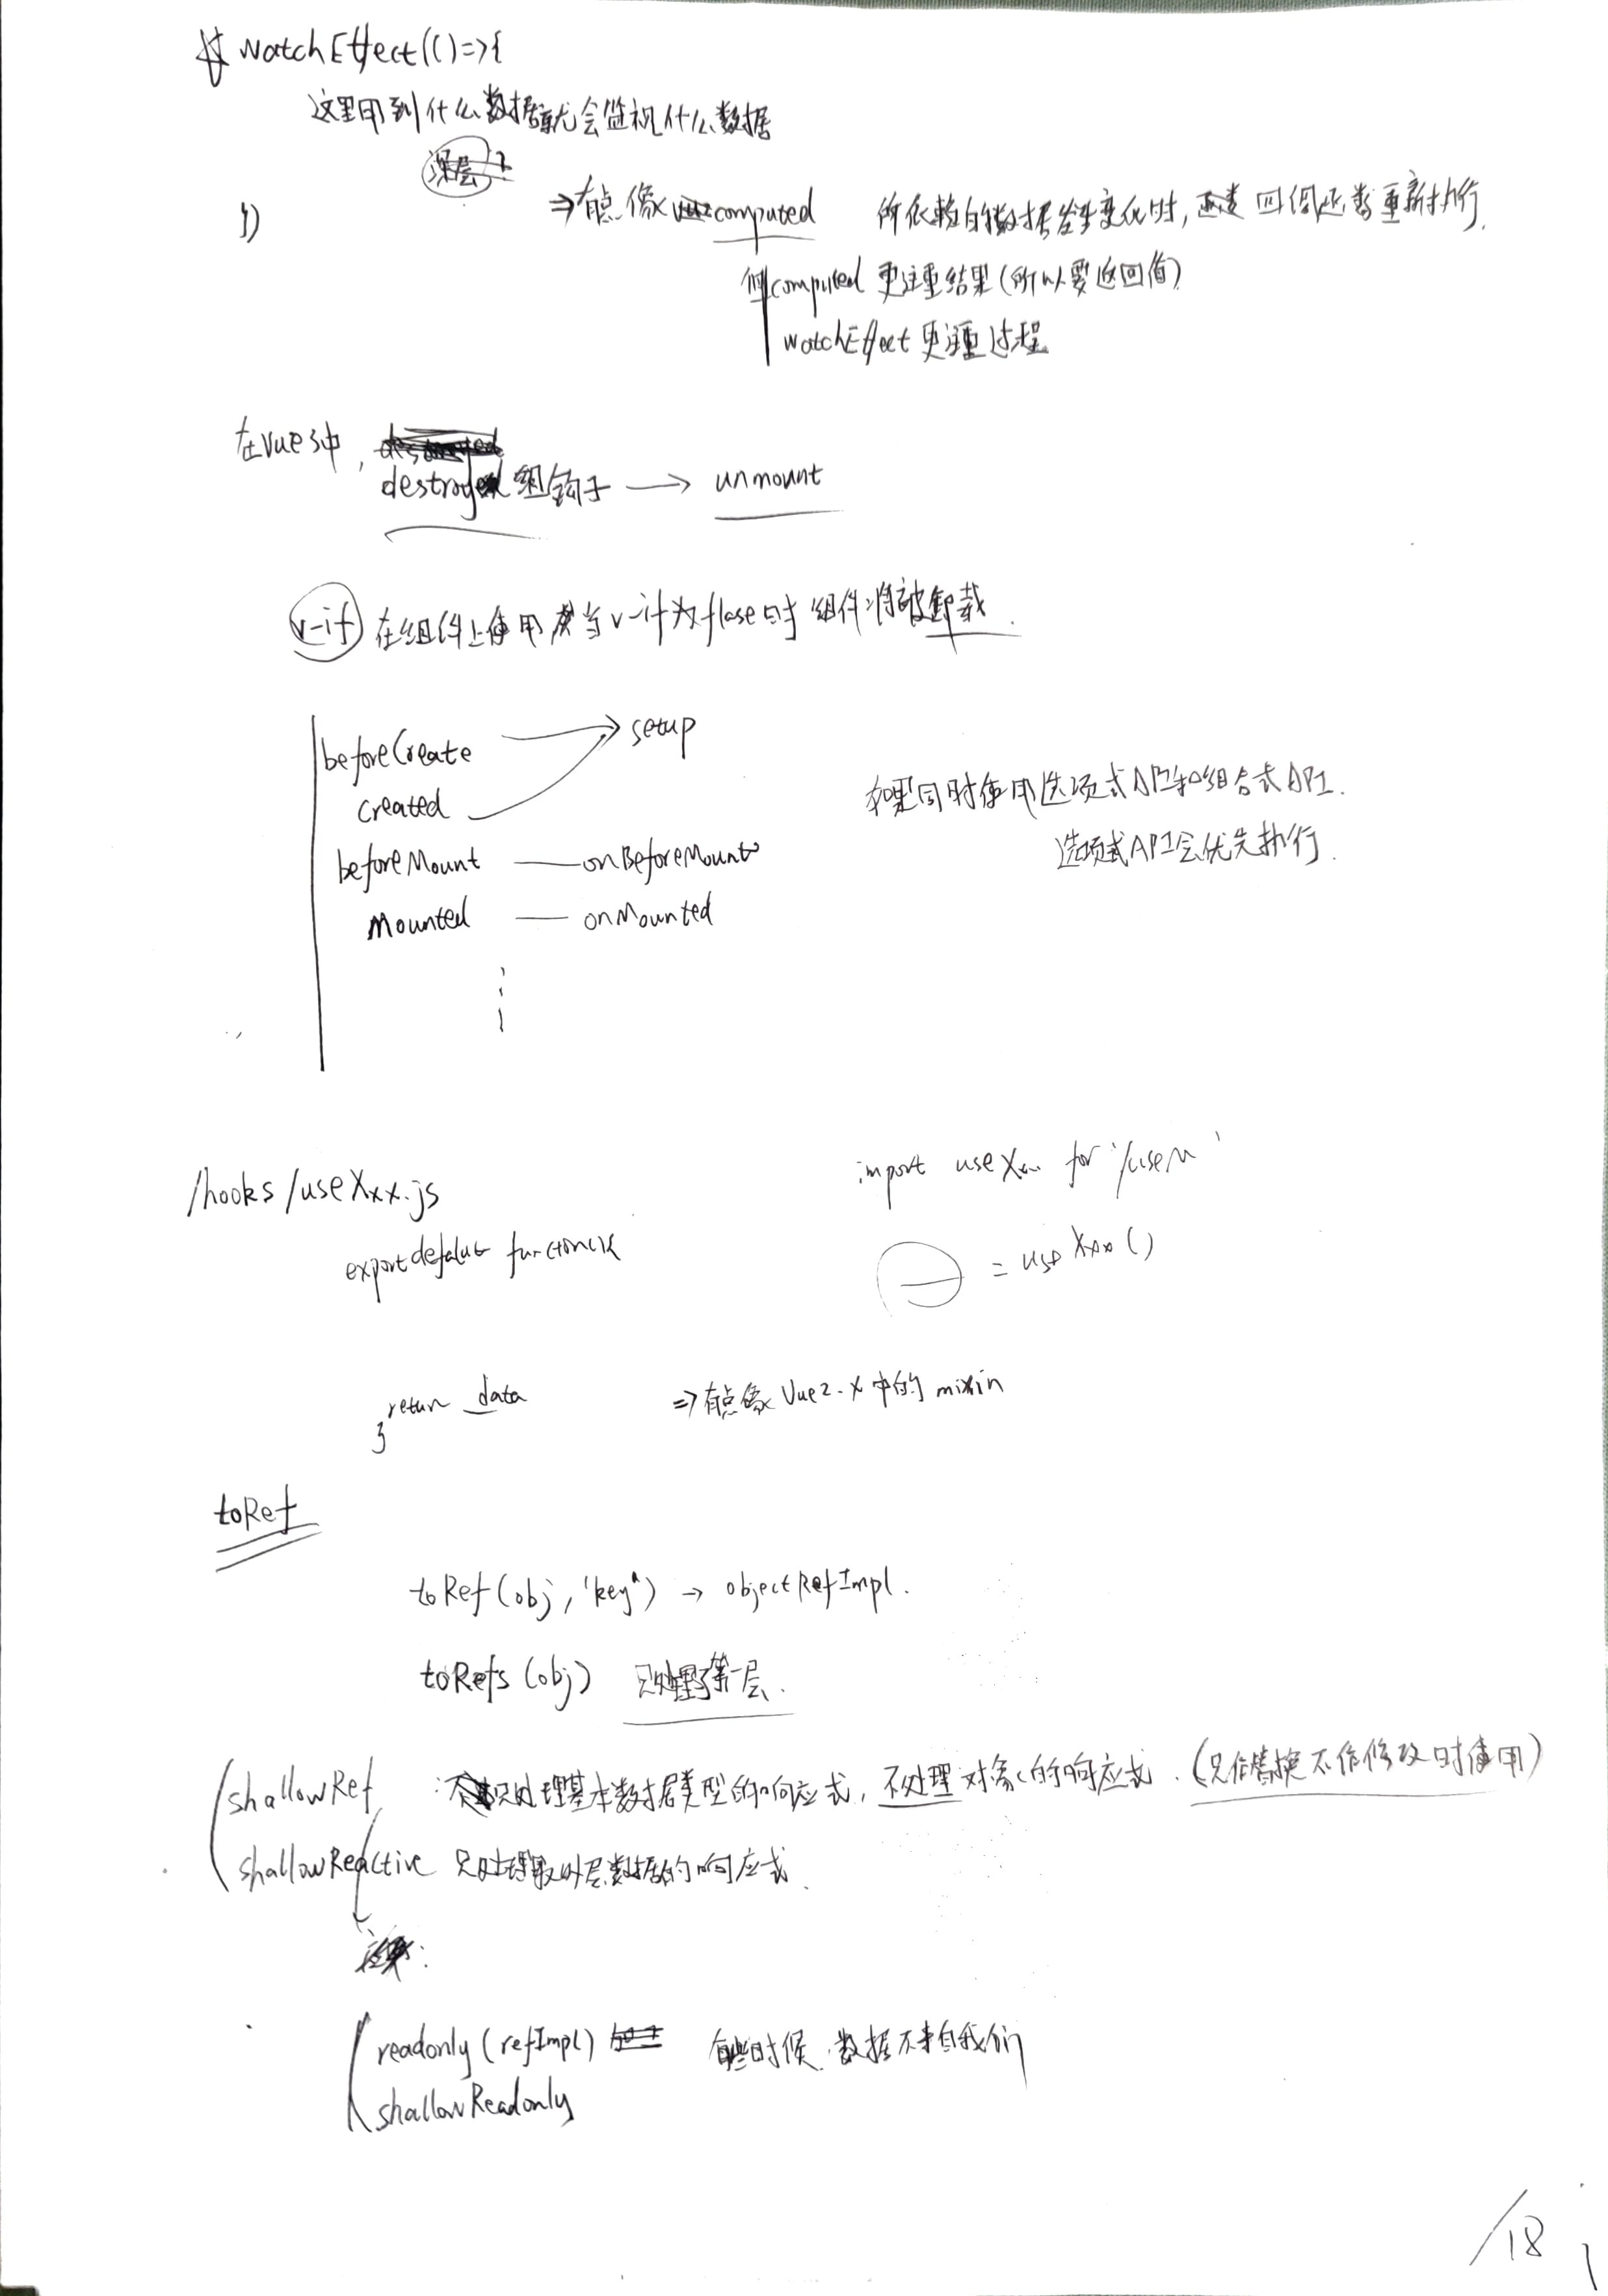 watchEffect(()=>{
这里用到什么数据就会监视什么数据
深层?
})
⇒有点像computed 所依赖的数据发生变化时, 回调函数重新执行.
但computed 更注重结果(所以要返回值)
watchEffect 更注重过程
在vue3中,
destroy 组钩子 → unmount
v-if 在组件上使用 当v-if为flase时 组件将被卸载.
beforeCreate → setup
created
beforeMount —— onBeforeMount
Mounted —— onMounted
如果同时使用选项式API和组合式API.
选项式API会优先执行.
/hooks/useXxx.js
export defalut function(){
return data
}
import useXxx for './useXx'
= useXxx()
⇒有点像Vue2.x中的mixin
toRef
toRef(obj,'key') → objectRefImpl.
toRefs(obj) 只处理了第一层.
shallowRef :只处理基本数据类型的响应式, 不处理对象的响应式. (只作替换不作修改时使用)
shallowReactive 只处理最外层数据的响应式.
readonly(refImpl) 有些时候,数据不来自我们
shallowReadonly
/18